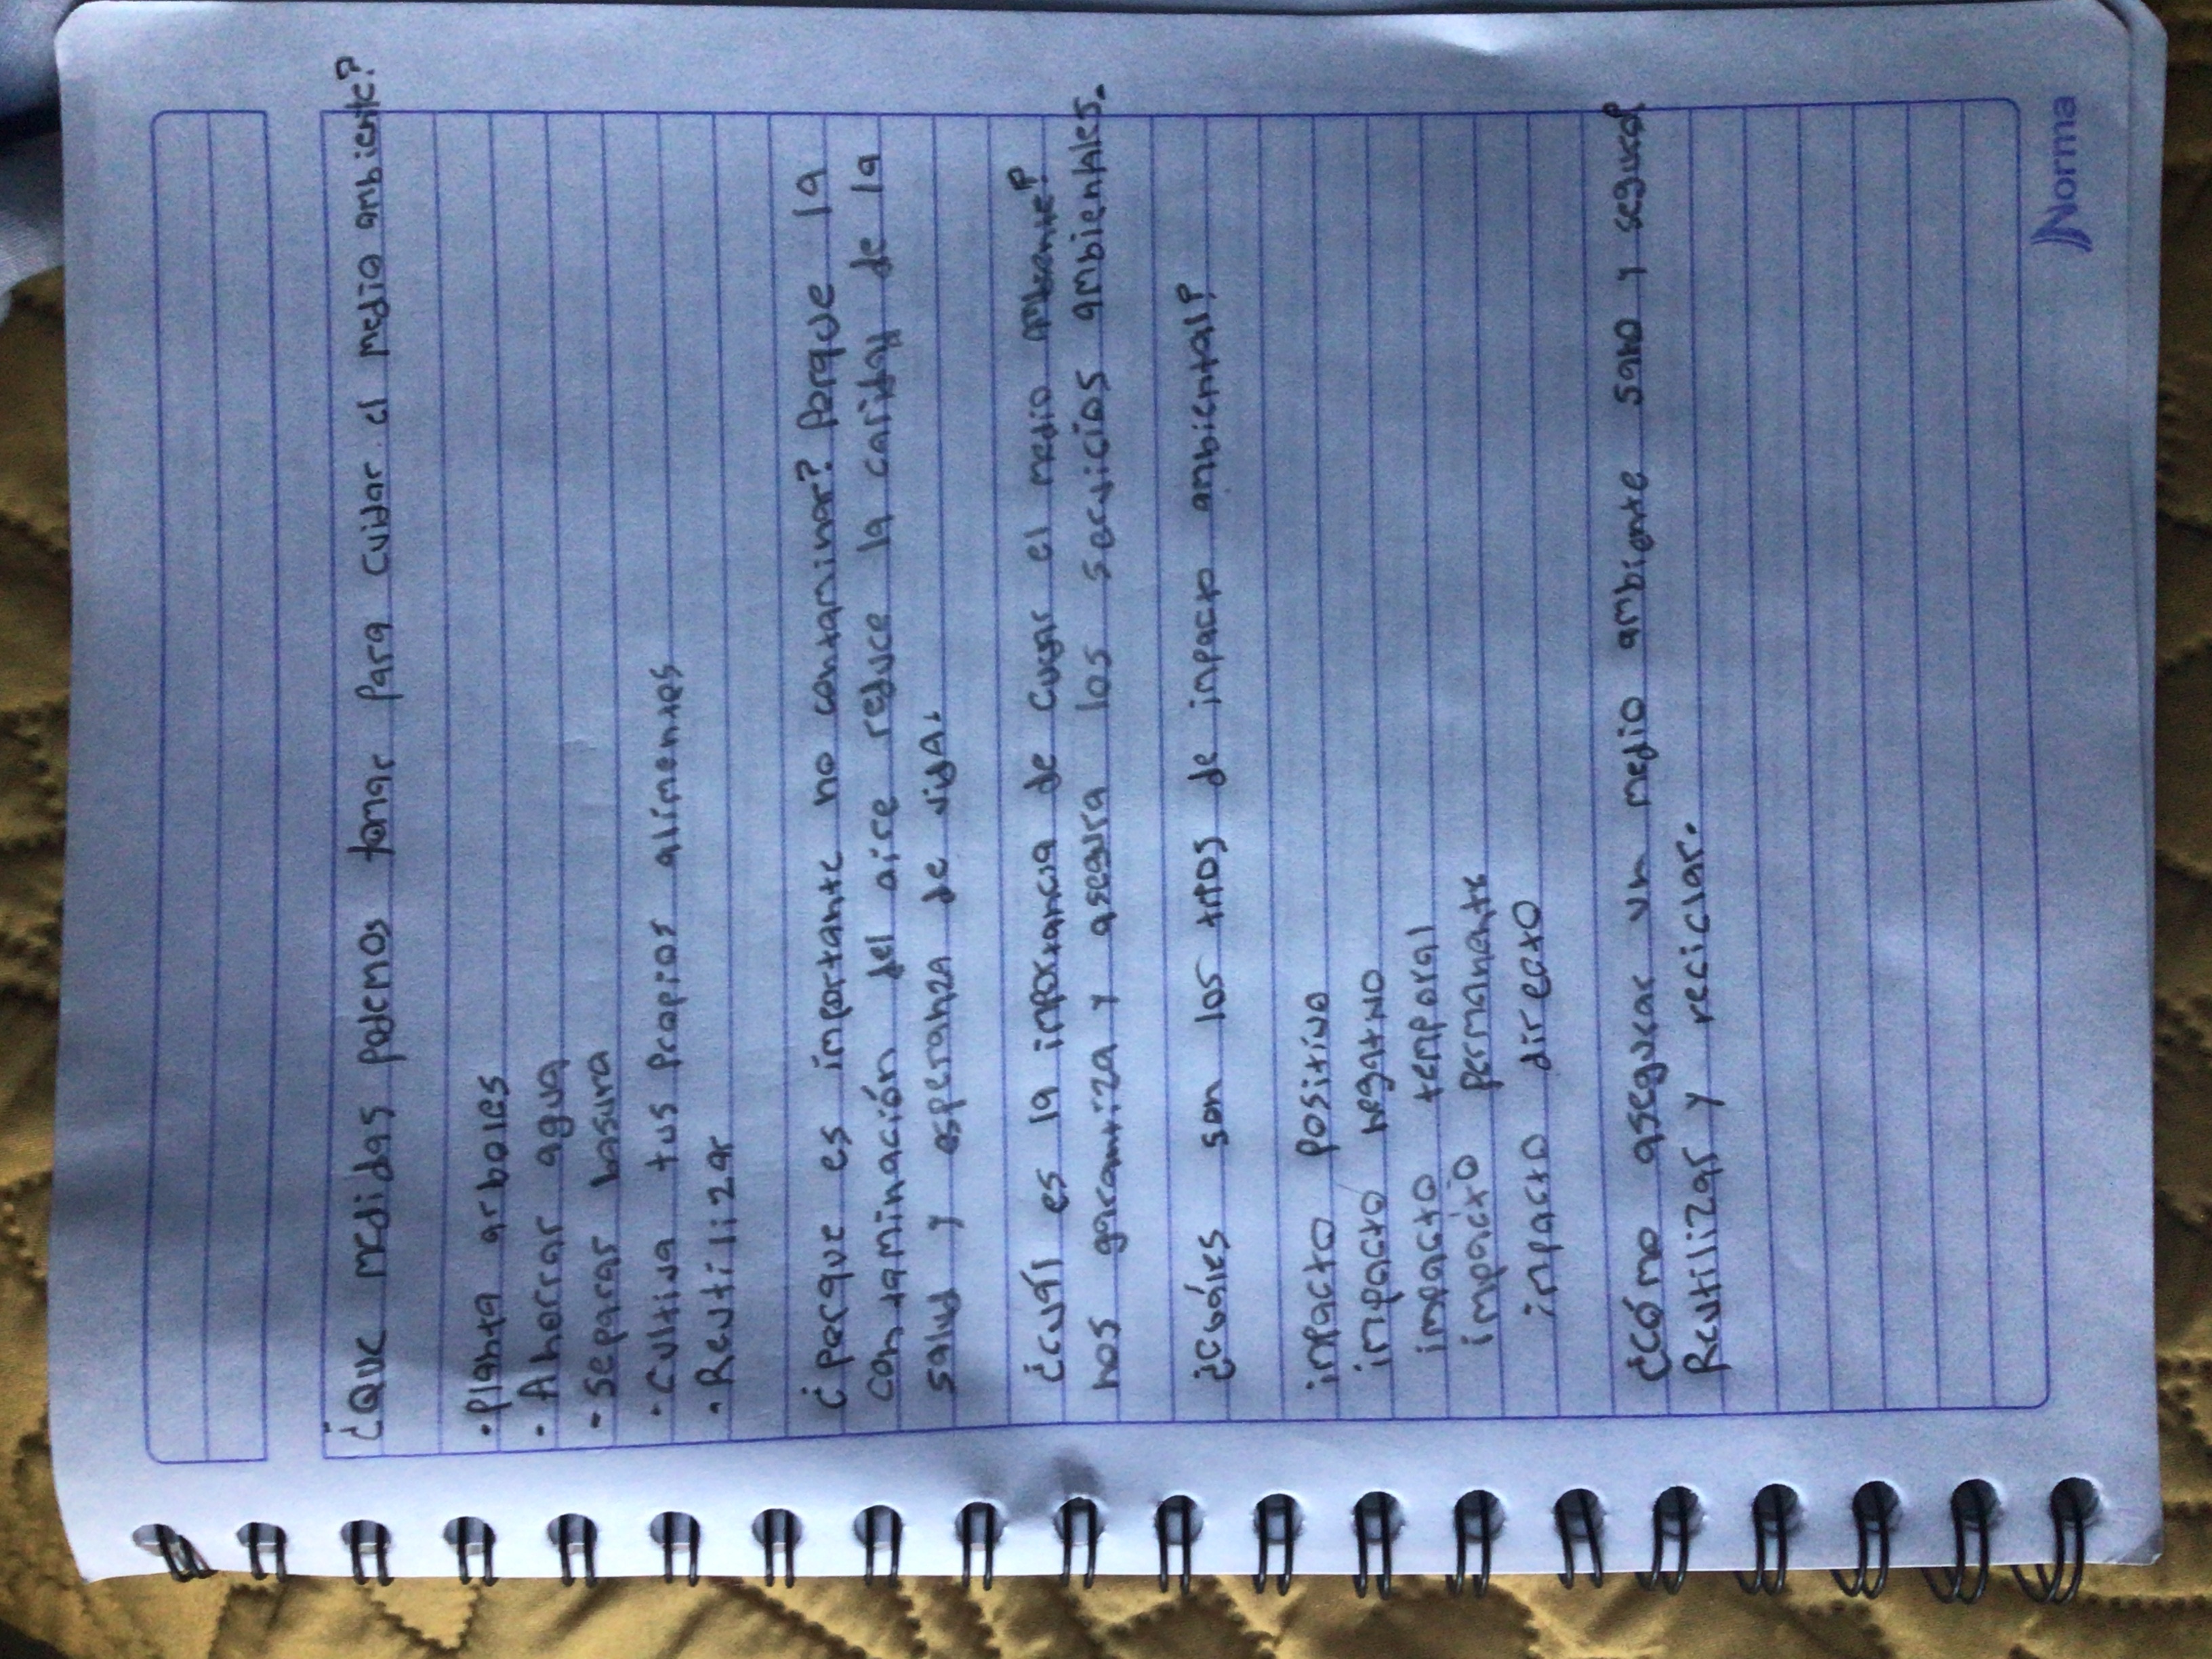 ¿Que medidas podemos tomar para cuidar el medio ambiente?
• Planta arboles
• Ahorrar agua
- Separar basura
• Cultiva tus propios alimentos
• Reutilizar
¿Porque es importante no contaminar? Porque la
contaminación del aire reduce la calidad de la
salud y esperanza de vida.
¿Cuál es la importancia de cuidar el medio ambiente?
nos garantiza y asegura los servicios ambientales.
¿Cuáles son los tipos de inpacto ambiental?
inpacto positivo
impacto negativo
impacto temporal
impacto permanente
inpacto directo
¿Cómo asegurar un medio ambiente sano y seguro?
Reutilizar y reciclar.
Norma